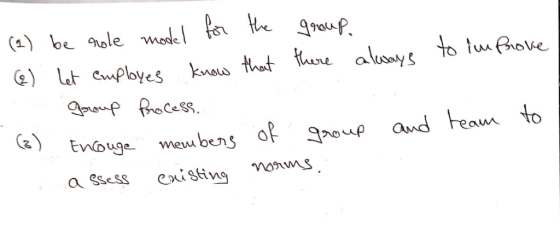 (1) be role model for the group.
(2) let employes know that there always to improve
group process.
(3) Encouge members of group and team to
assess existing norms.